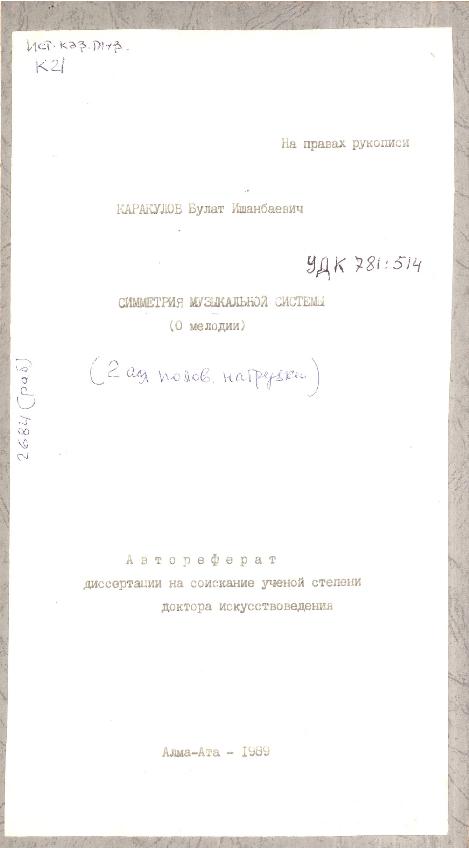 Ист. каз. муз.
К21
На правах рукописи
КАРАКУЛОВ Булат Ишанбаевич
УДК 781:514
СИММЕТРИЯ МУЗЫКАЛЬНОЙ СИСТЕМЫ
(О мелодии)
(2 ая полов. нагрузки)
2684 (раб)
А в т о р е ф е р а т
диссертации на соискание ученой степени
доктора искусствоведения
Алма-Ата - 1989